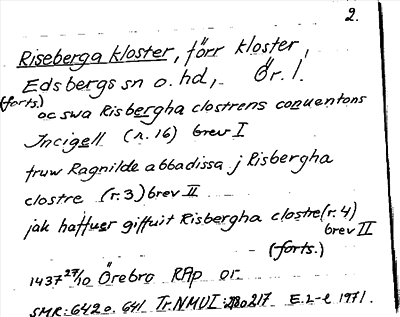 2.
Riseberga kloster, förr kloster,
Edsbergs sn o. hd, Ör. l.
(forts.)
oc swa Risbergha clostrens conuentons
Incigell (r. 16) brev I
fruw Ragnilde abbadissa j Risbergha
clostre (r. 3) brev II
jak haffuer giffuit Risbergha clostre (r. 4)
brev II
(forts.)
1437 27/10 Örebro RAp or.
SMR: 642 o. 641 Tr. NMU I: 217 E. L-l 1971.